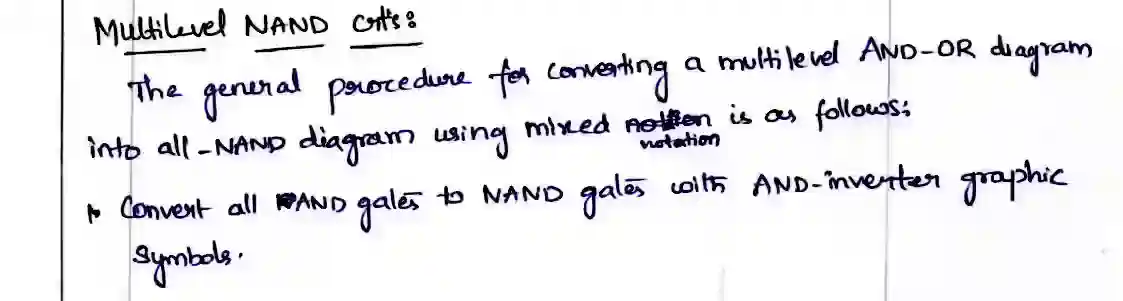 Multilevel NAND Ckts:
The general procedure for converting a multilevel AND-OR diagram
into all-NAND diagram using mixed notation is as follows:
1. Convert all AND gates to NAND gates with AND-inverter graphic
symbols.